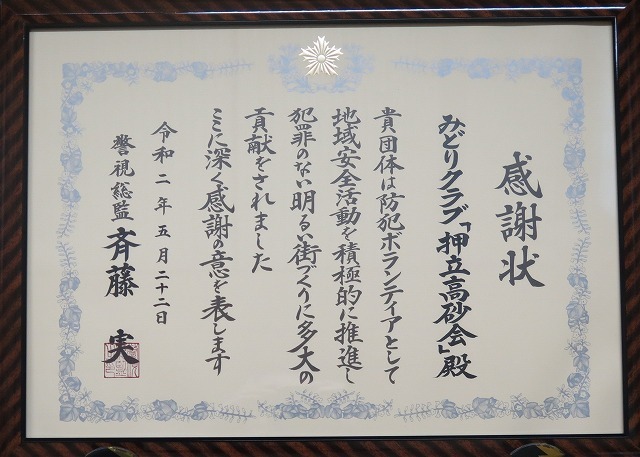 感謝状
みどりクラブ「押立高砂会」殿
貴団体は防犯ボランティアとして
地域安全活動を積極的に推進し
犯罪のない明るい街づくりに多大の
貢献をされました
ここに深く感謝の意を表します
令和二年五月二十二日
警視総監 斉藤 実